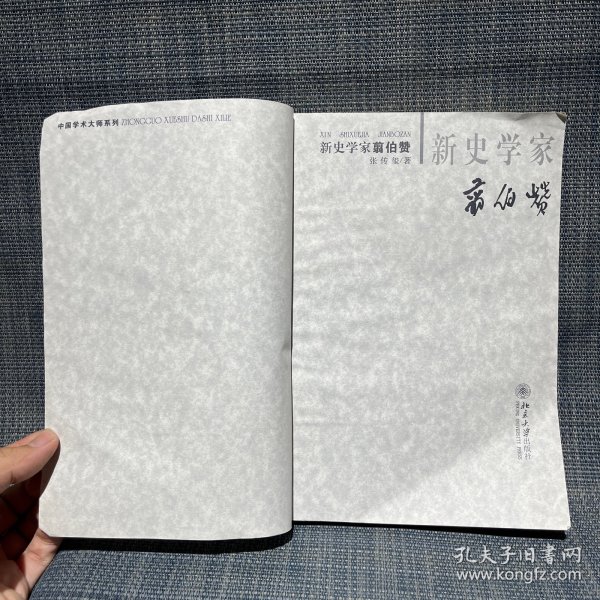 中国学术大师系列 ZHONGGUO XUESHU DASHI XILIE
XIN SHIXUEJIA JIANBOZAN
新史学家翦伯赞
张传玺/著
新史学家
翦伯赞
北京大学出版社
PEKING UNIVERSITY PRESS
孔夫子旧书网
www.kongfz.com